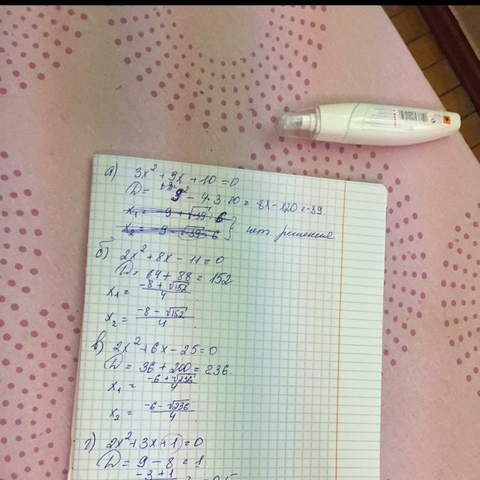 а) 3x² + 9x + 10 = 0
D = 9² - 4·3·10 = 81 - 120 = -39
x₁ = -9 + √39 6
x₂ = 9 √39 6 } нет решения
б) 2x² + 8x - 11 = 0
D = 64 + 88 = 152
x₁ = (-8 + √152)/4
x₂ = (-8 - √152)/4
в) 2x² + 6x - 25 = 0
D = 36 + 200 = 236.
x₁ = (-6 + √236)/4
x₂ = (-6 - √236)/4
г) 2x² + 3x + 1 = 0
D = 9 - 8 = 1
-3 + 1